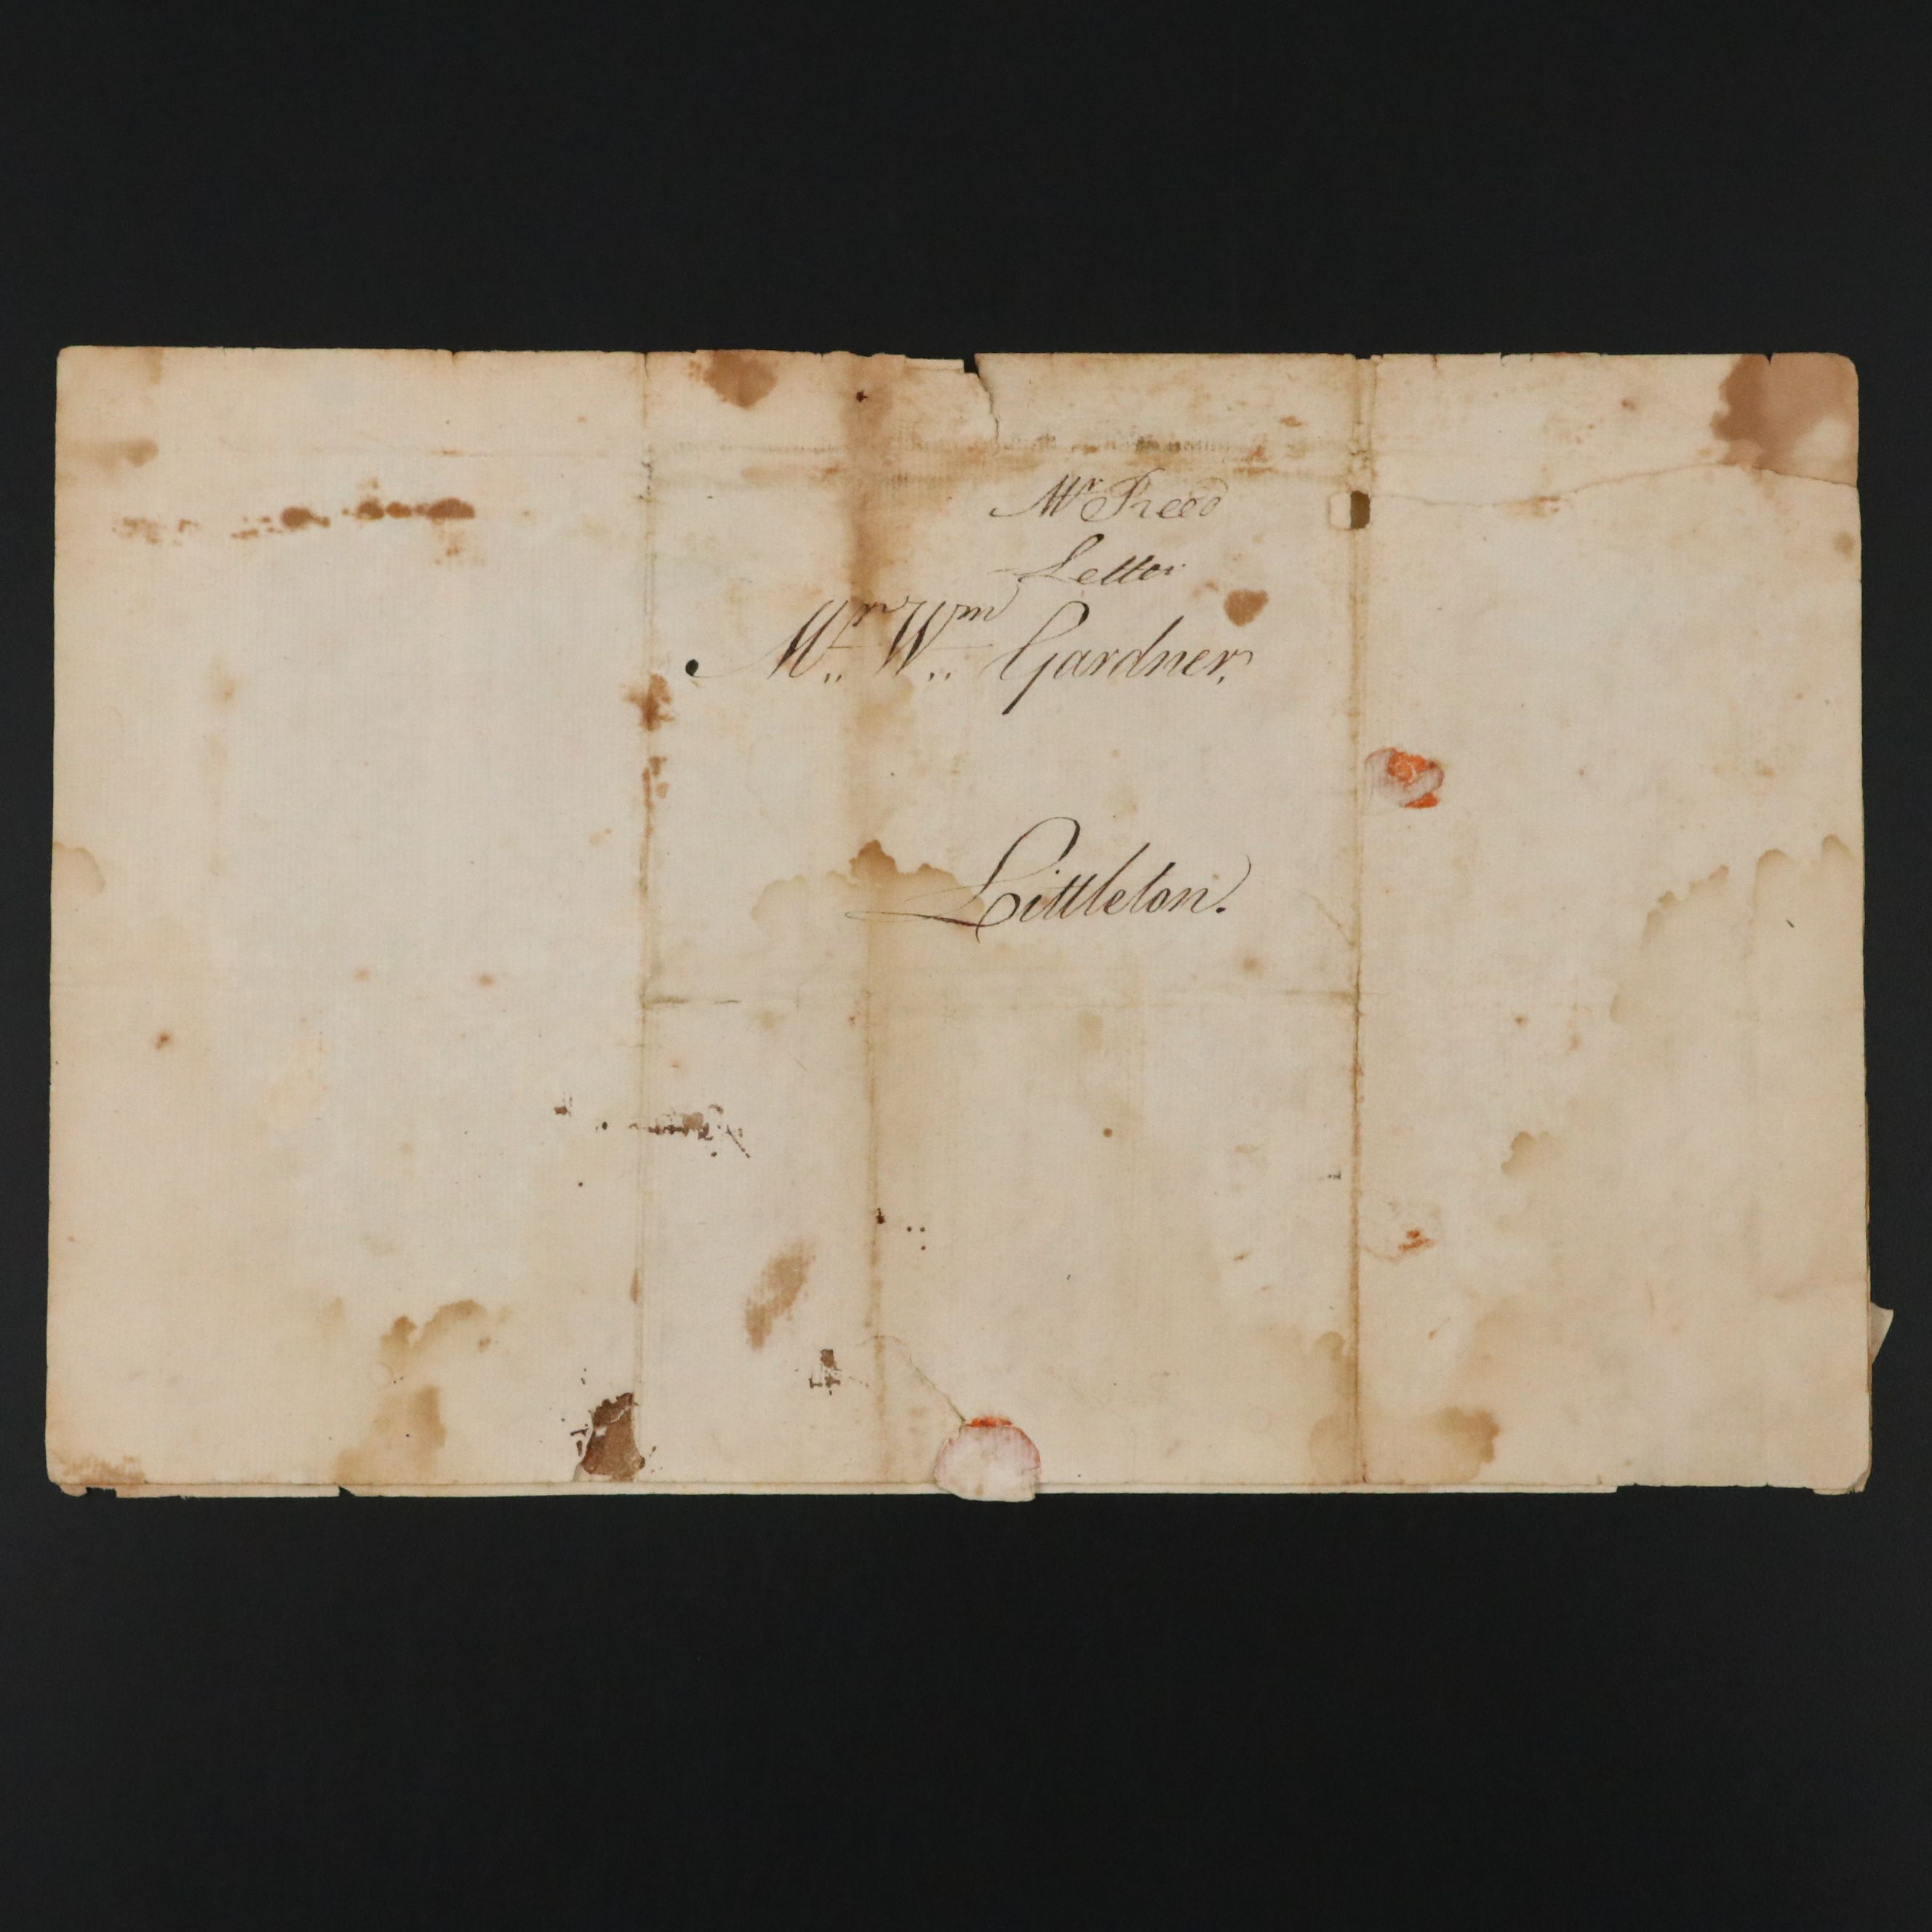 Mr Reed
Letter
Mr Wm Gardner,
Littleton.